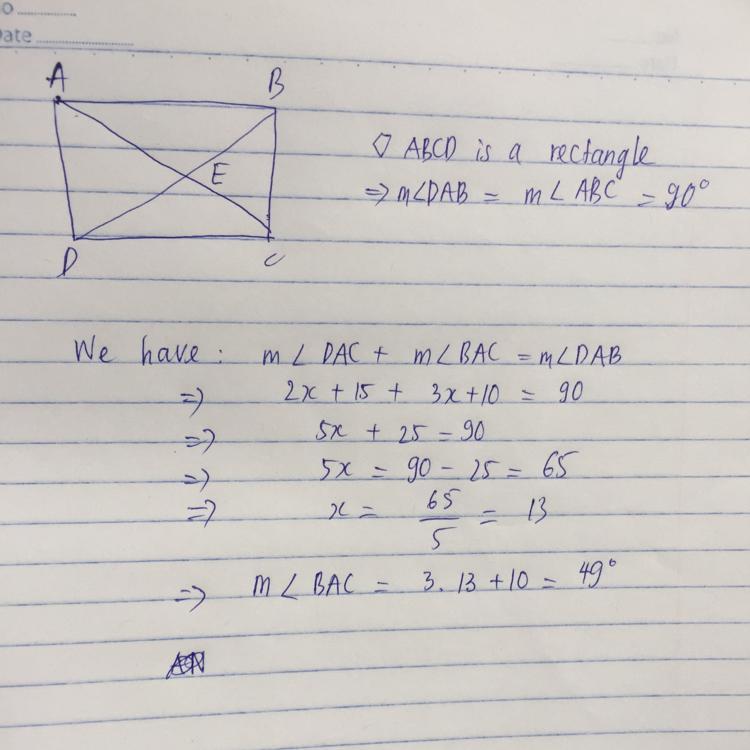 o
Date
A
B
E
D
C
▱ ABCD is a rectangle
=> m∠DAB = m∠ABC = 90°
We have : m∠DAC + m∠BAC = m∠DAB
=> 2x + 15 + 3x + 10 = 90
=> 5x + 25 = 90
=> 5x = 90 - 25 = 65
=> x = 65/5 = 13
=> m∠BAC = 3.13 + 10 = 49°